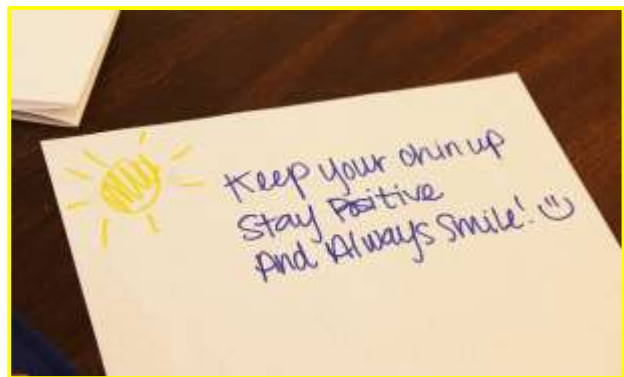 Keep your chin up
Stay Positive
And Always Smile! :)